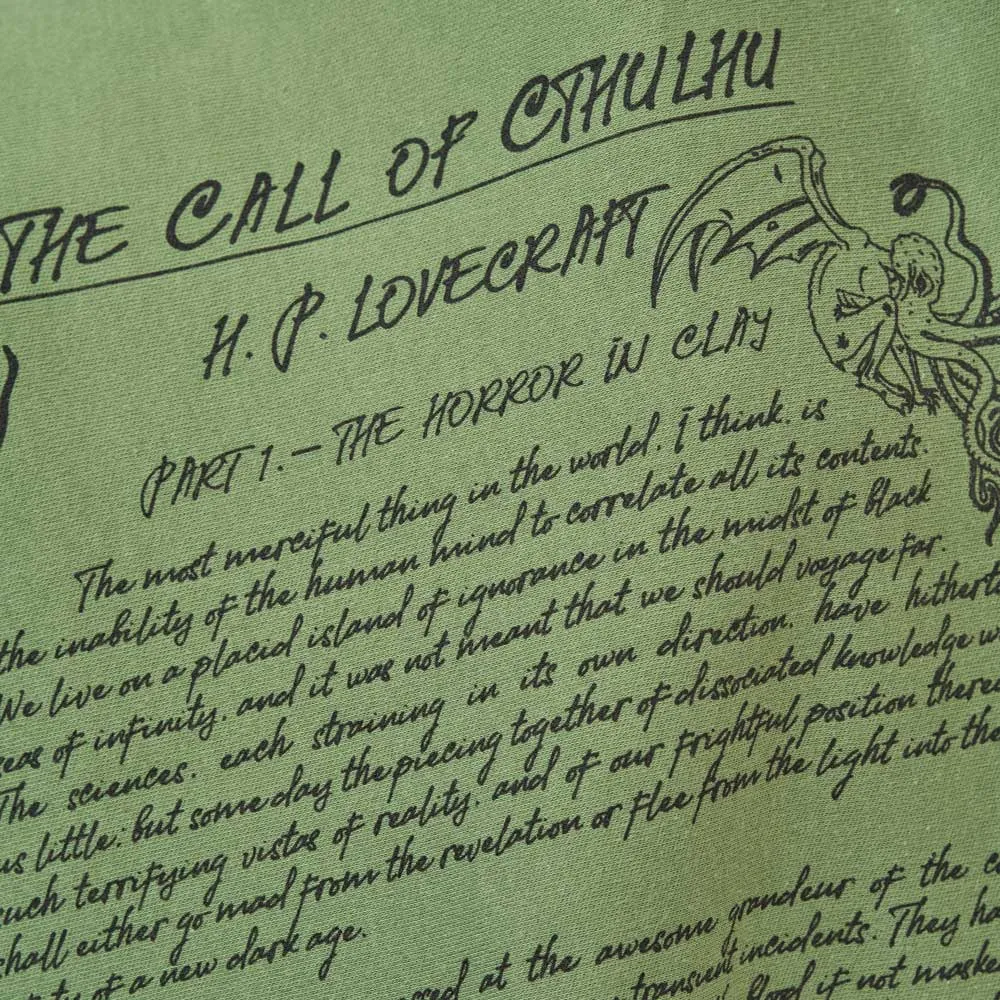 THE CALL OF CTHULHU
H. P. LOVECRAFT
PART 1. – THE HORROR IN CLAY
The most merciful thing in the world. I think. is
the inability of the human mind to correlate all its contents.
We live on a placid island of ignorance in the midst of black
seas of infinity. and it was not meant that we should voyage far.
The sciences. each straining in its own direction. have hithert
us little; but some day the piecing together of dissociated knowledge w
such terrifying vistas of reality. and of our frightful position there
shall either go mad from the revelation or flee from the light into the
of a new dark age.
at the awesome grandeur of the c
transient incidents. They ha
blood if not maske